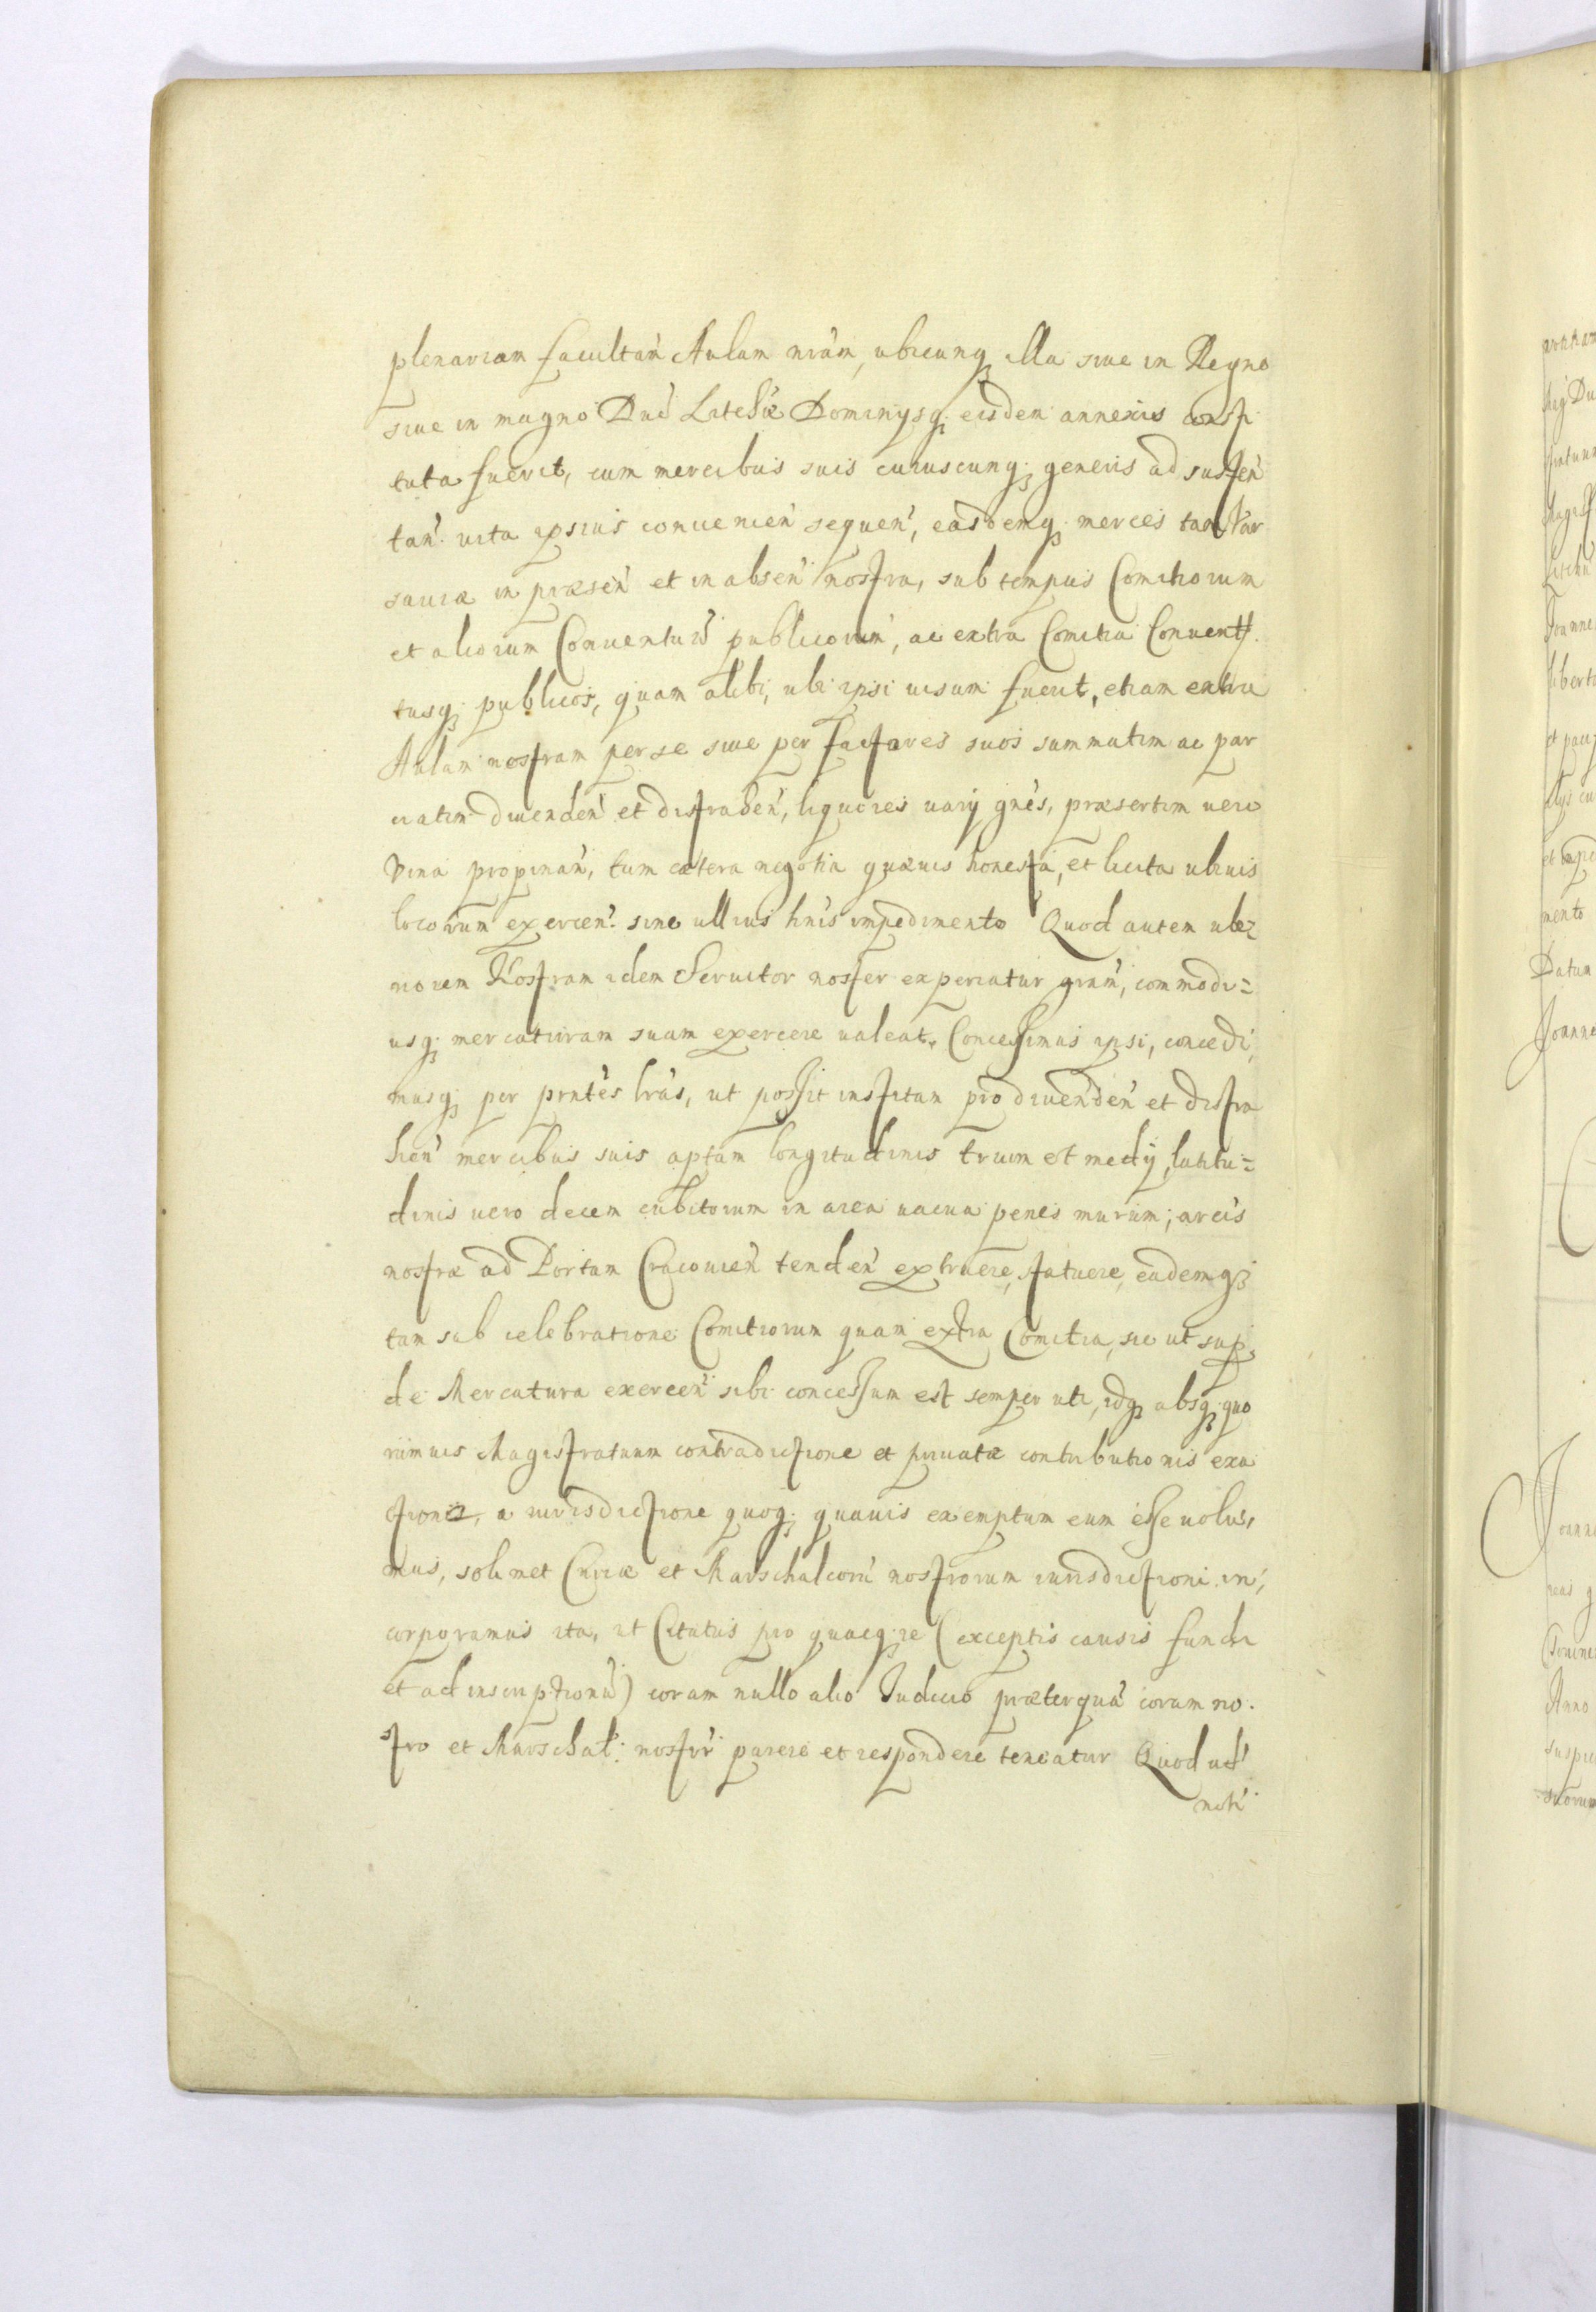 plenariam facultan̄ Aulam nr̃am, ubicunq; illa siue in Regno
siue in magno Duc̃ Lith̃æ Dominysq; eisdem annexis consti
tuta fuerit, cum mercibus suis cuiuscunq; generis ad susten̄
tan̄ uita ipsius conuenien̄ sequen̄, easdemq; merces tam Var
sauiæ in præsen̄ et in absen̄ nostra, sub tempus Comitiorum
et aliorum Conuentuũ publicorum̄, ac extra Comitia Conuent
tusq; publicos, quam alibi, ubi ipsi uisum fuerit, etiam extra
Aulam nostram per se siue per factores suos summatim ac par
ciatim diuenden̄ et distrahen̄, liquores uarij gn̄es, præsertim uero
Vina propinan̄, tum cætera negotia quæuis honesta, et licita ubiuis
locorum exercen̄ sine ullius hn̄is impedimento Quod autem ube
riorem Nostram idem Seruitor noster experiatur gr̃am, commodi=
usq; mercaturam suam exercere ualeat, Concessimus ipsi, concedi
musq; per pn̄tes lr̃as, ut possit institam pro diuenden̄ et distra
hen̄ mercibus suis aptam longitudinis trium et medij, latitu=
dinis uero decem cubitorum in area uacua penes murum, arcis
nostræ ad Portam Cracouien̄ tenden̄ extruere, statuere, eademq;
tam sub celebratione Comitiorum quam extra Comitia, sic ut sup
de Mercatura exercen̄ sibi concessum est semper uti, idq; absq; quo
rumuis Magistratuum contradictione et priuatæ contributionis exa
ctione, a iurisdictione quoq; quauis exemptum eum esse uolu
mus, solimet Curiæ et Marschalcorũ nostrorum iurisdictioni in
corporamus ita, ut Citatus pro quacq; re (exceptis causis fundi
et ad inscriptionũ) coram nullo alio Iudicio præterquã coram no
stro et Marschal: nostrr̃ parere et respondere teneatur Quod ad
noti